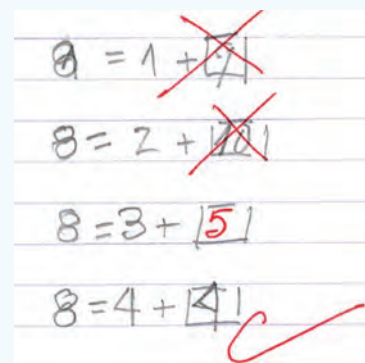 8 = 1 + 9
8 = 2 + 10
8 = 3 + 5
8 = 4 + 4